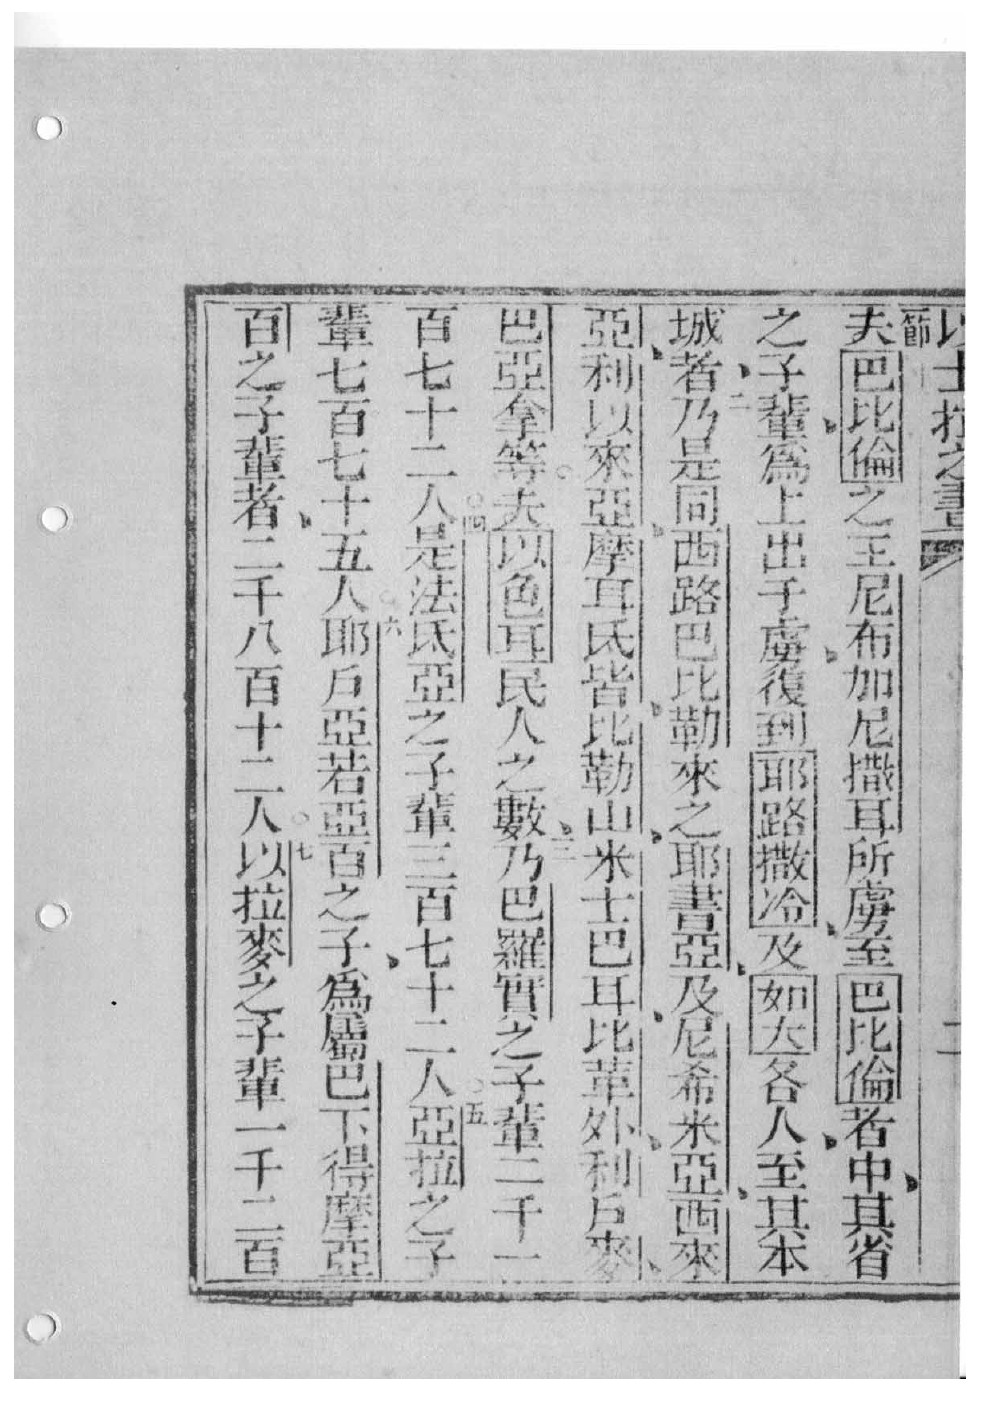 以士拉之書 二
節
夫巴比倫之王尼布加尼撒耳所虜至巴比倫者中其省
之子輩爲上出于虜復到耶路撒冷及如大各人至其本
城者二乃是同西路巴比勒來之耶書亞及尼希米亞西來
亞利以來亞摩耳氐皆比勒山米士巴耳比革外利戶麥
巴亞拿等○夫以色耳民人之數三乃巴羅實之子輩二千一
百七十二人○四是法氐亞之子輩三百七十二人○五亞拉之子
輩七百七十五人○六耶戶亞若亞百之子爲屬巴下得摩亞
百之子輩者二千八百十二人○七以拉麥之子輩一千二百